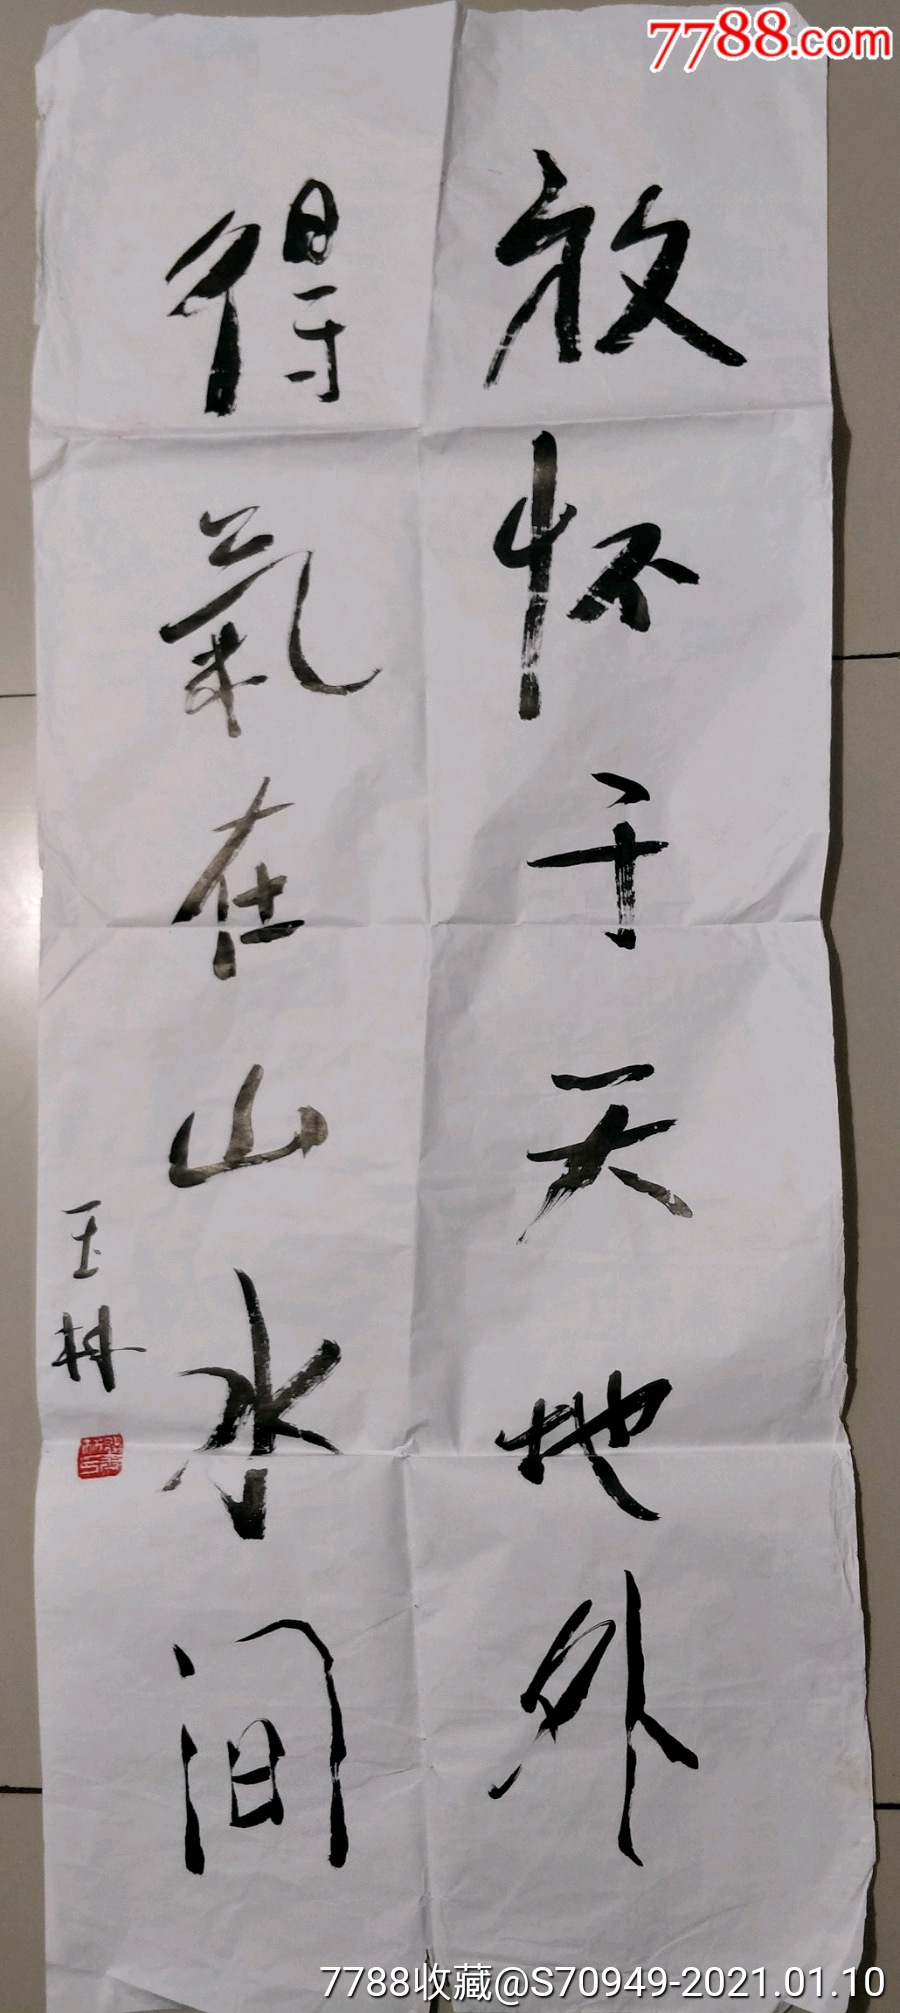 7788.com
放怀于天地外
得氣在山水间
玉林
7788收藏@S70949-2021.01.10